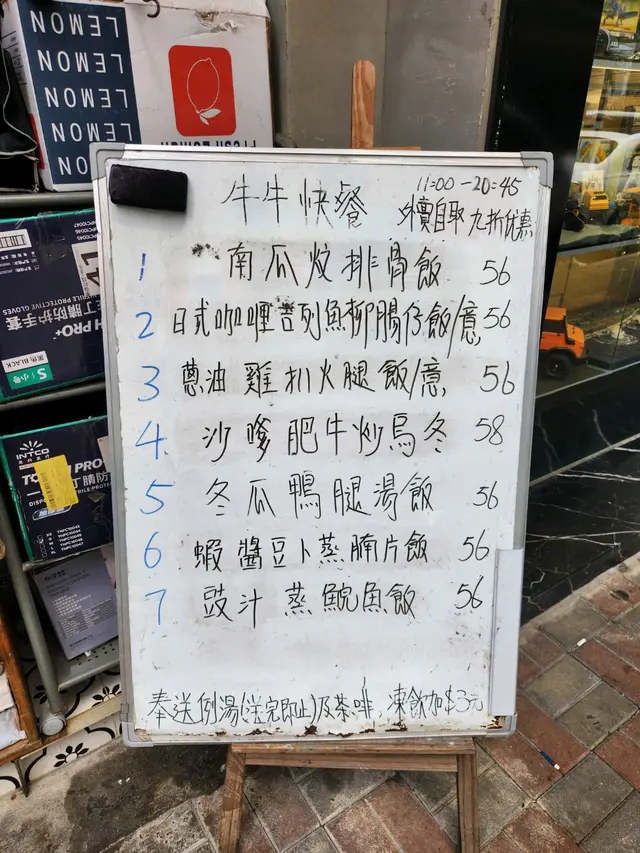 LEMON
LEMON
LEMON
LEMON
LEMON
牛牛快餐
11:00-20:45
外賣自取 九折优惠
1 南瓜炆排骨飯 56
2 日式咖喱吉列魚柳腸仔飯/意 56
3 蔥油雞扒火腿飯/意 56
4 沙嗲肥牛炒烏冬 58
5 冬瓜鴨腿湯飯 56
6 蝦醬豆卜蒸腩片飯 56
7 豉汁蒸鯇魚飯 56
奉送例湯(送完即止)及茶啡,凍飲加$3元
PRO+
丁腈防护手套
S 小号
INTCO
PRO